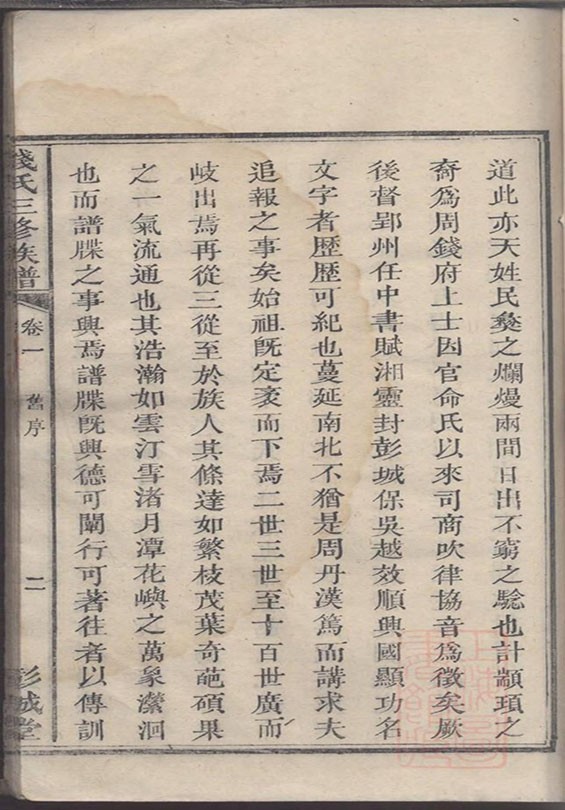 道此亦天姓民彝之爛熳兩間日出不窮之驗也計顓頊之
裔爲周錢府上士因官命氏以來司商吹律協音爲徵矣厥
後督鄞州任中書賦湘靈封彭城保吳越效順興國顯功名
文字者歷歷可紀也蔓延南北不猶是周丹漢篤而講求夫
追報之事矣始祖旣定亥而下焉二世三世至十百世廣而
岐出焉再從三從至於族人其條達如繁枝茂葉奇葩碩果
之一氣流通也其浩瀚如雲汀雪渚月潭花嶼之萬象瀠洄
也而譜牒之事興焉譜牒旣興德可闡行可著往者以傳訓
錢氏三修族譜
卷一
舊序
二
彭城堂